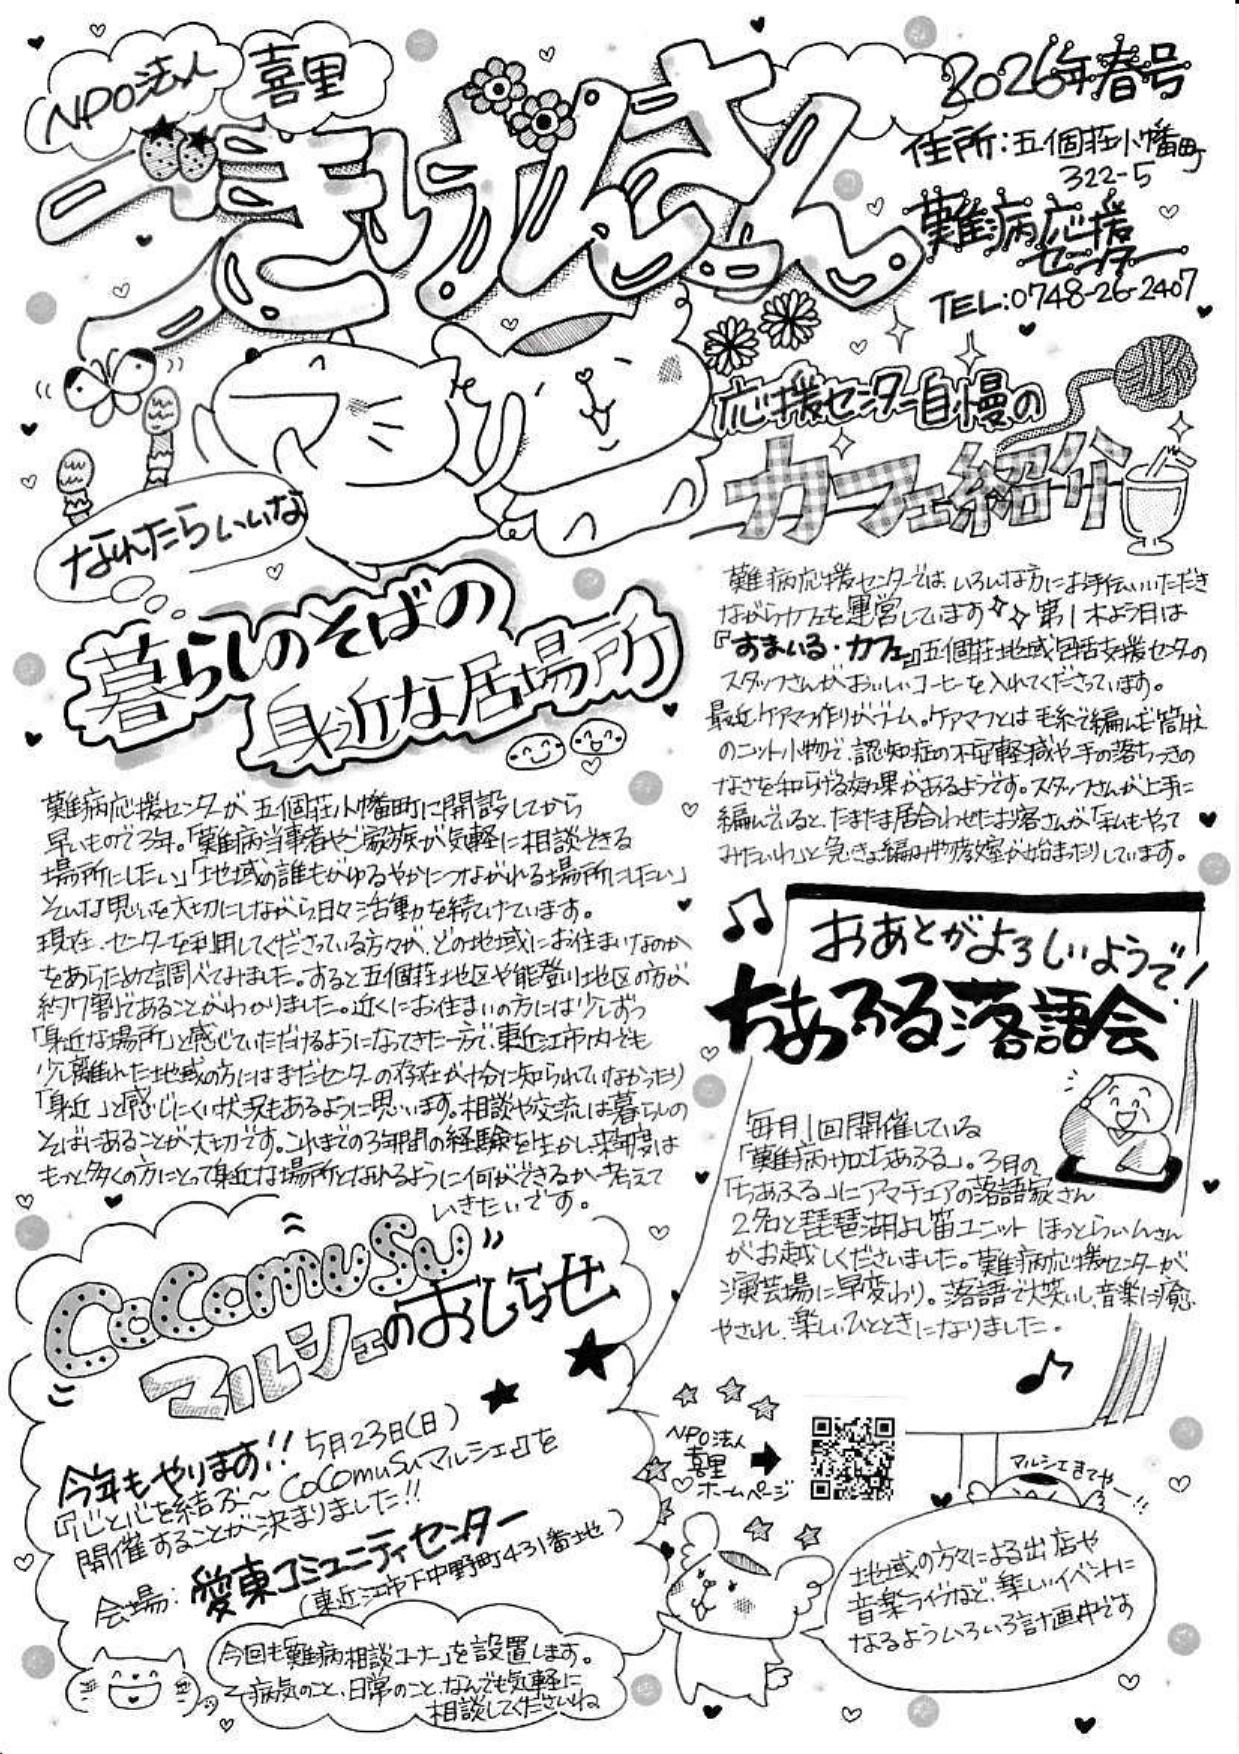 NPO法人 喜里
ごきげんさん
2026年春号
住所:五個荘小幡町
322-5
難病応援
センター
TEL:0748-26-2407
なれたらいいな
暮らしのそばの
身近な居場所
難病応援センターが五個荘小幡町に開設してから
早いもので3年。「難病当事者やご家族が気軽に相談できる
場所にしたい」「地域の誰もがゆるやかにつながれる場所にしたい」
そんな思いを大切にしながら日々活動を続けています。
現在、センターを利用してくださっている方々が、どの地域にお住まいなのか
をあらためて調べてみました。すると五個荘地区や能登川地区の方が
約7割であることがわかりました。近くにお住まいの方には少しずつ
「身近な場所」と感じていただけるようになってきた一方で、東近江市内でも
少し離れた地域の方にはまだセンターの存在が十分に知られていなかったり
「身近」と感じにくい状況もあるように思います。相談や交流は暮らしの
そばにあることが大切です。これまでの3年間の経験を生かし、来年度は
もっと多くの方にとって身近な場所となれるように何ができるか考えて
いきたいです。
応援センター自慢の
カフェ紹介
難病応援センターでは、いろいろな方にお手伝いいただき
ながらカフェを運営しています 第1木よう日は
『すまいる・カフェ』五個荘地域包括支援センターの
スタッフさんがおいしいコーヒーを入れてくださっています。
最近、ケアマフ作りがブーム。ケアマフとは毛糸で編んだ筒状
のニット小物で、認知症の不安軽減や手の落ちつきの
なさを和らげる効果があるようです。スタッフさんが上手に
編んでいると、たまたま居合わせたお客さんが「私もやって
みたいわ」と急きょ編み物教室が始まったりしています。
おあとがよろしいようで!
ちあふる落語会
毎月1回開催している
「難病サロンちあふる」。3月の
「ちあふる」にアマチュアの落語家さん
2名と琵琶湖よし笛ユニット ほっとらいんさん
がお越しくださいました。難病応援センターが
演芸場に早変わり。落語で大笑いし、音楽に癒
やされ、楽しいひとときになりました。
CoComuSu
マルシェのおしらせ
今年もやります!! 5月23日(日)
『心と心を結ぶ～CoComuSuマルシェ』を
開催することが決まりました!!
会場:愛東コミュニティセンター
(東近江市下中野町431番地)
今回も「難病相談コーナー」を設置します。
病気のこと、日常のこと、なんでも気軽に
相談してくださいね
NPO法人
喜里
ホームページ
マルシェきてやー!!
地域の方々による出店や
音楽ライブなど、楽しいイベントに
なるよういろいろ計画中です